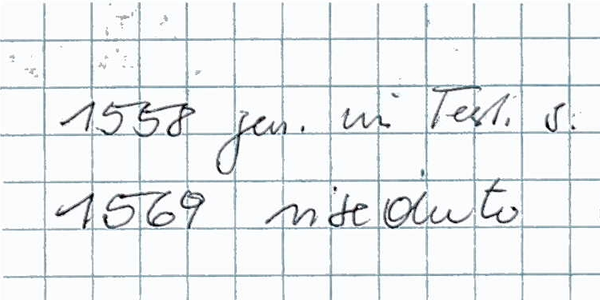 1558 gen. in Test. s.
1569 riseduto